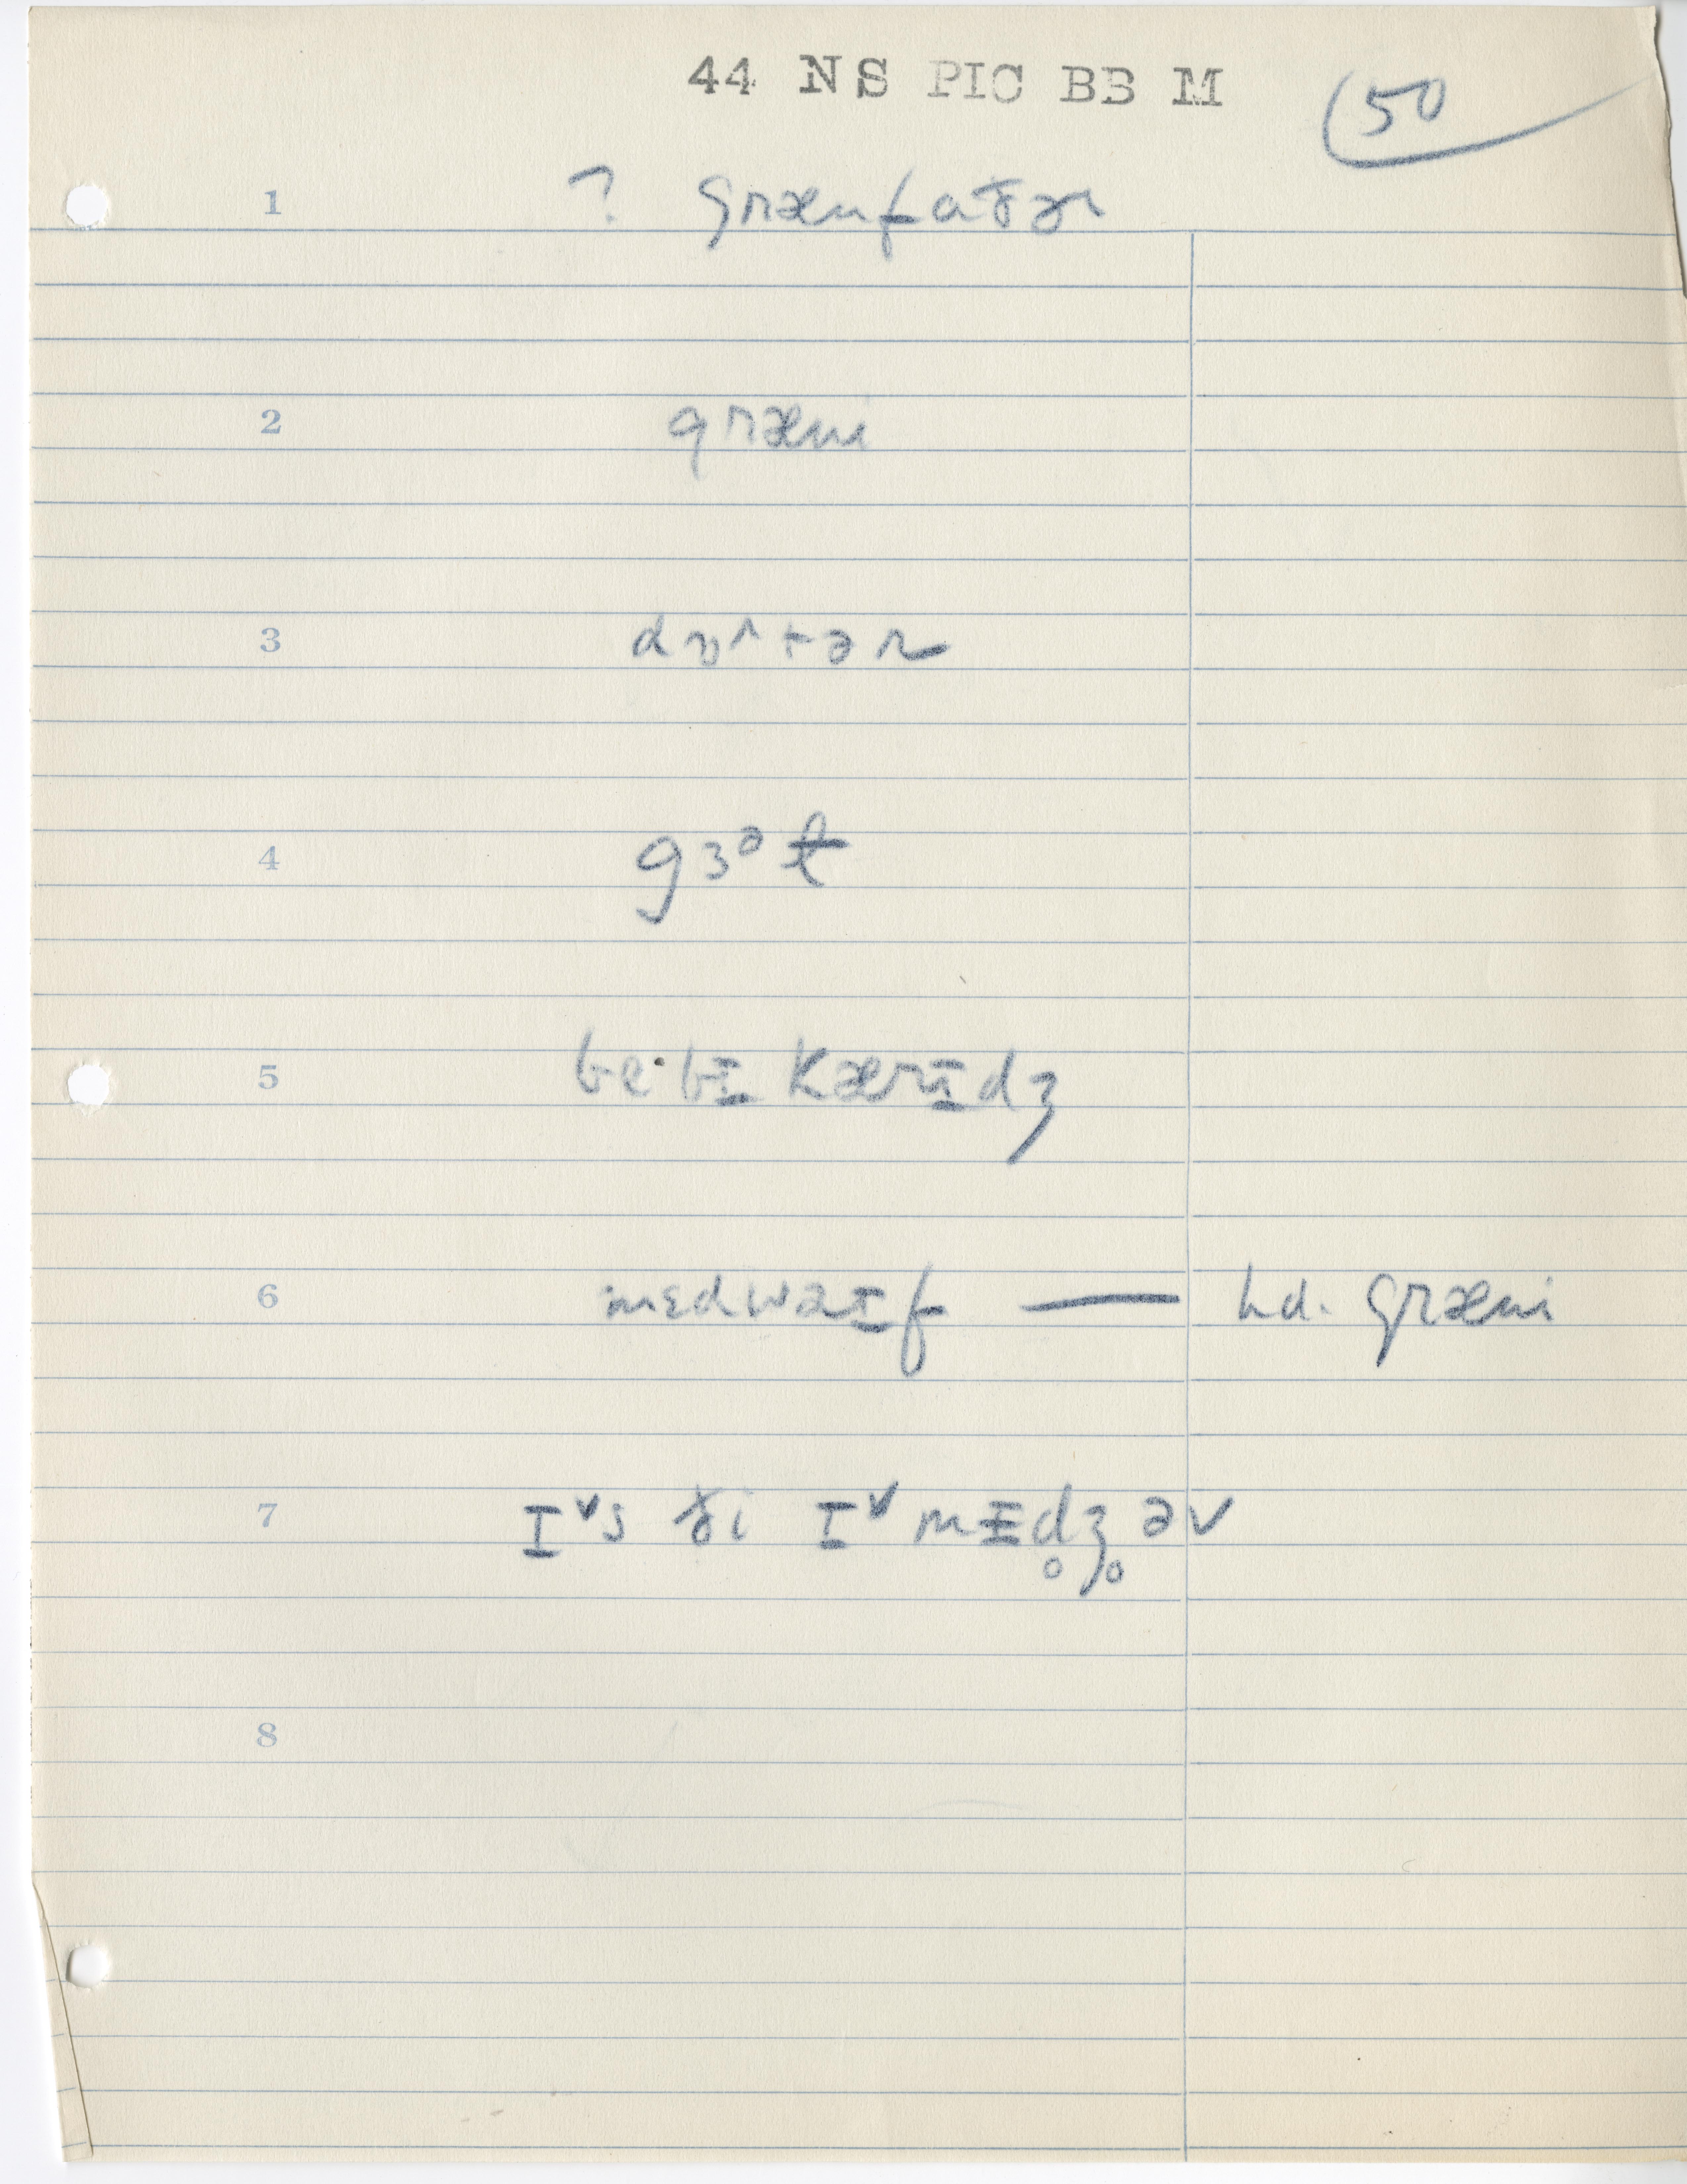 44 NS PIC BB M
50
1 ? grænfaðɚ
2 græni
3 
4 gɜᵊɫ
5 be·bɪ kærɪdʒ
6 mɛdwaɪf — hd. græni
7 ɪᵛs ði ɪᵛmɪdʒ̥ əv
8